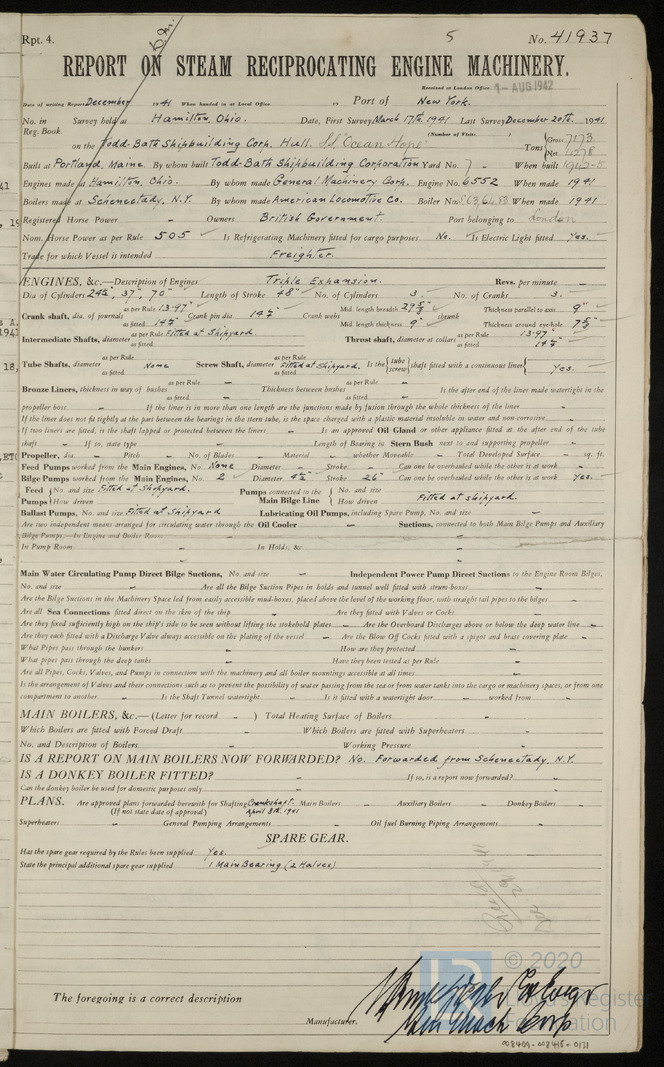 Rpt. 4. 5 No. 41937
REPORT ON STEAM RECIPROCATING ENGINE MACHINERY.
Received at London Office 1-AUG 1942
Date of writing Report December 1941 When handed in at Local Office 19 Port of New York.
No. in Reg. Book. Survey held at Hamilton, Ohio. Date, First Survey March 17th 1941 Last Survey December 20th, 1941
(Number of Visits)
on the Todd-Bath Shipbuilding Corp. Hull. SS "Ocean Hope" Tons { Gross 7173 Net
Built at Portland, Maine. By whom built Todd-Bath Shipbuilding Corporation Yard No. 7 When built 1942-5
Engines made at Hamilton, Ohio. By whom made General Machinery Corp. Engine No. 6552 When made 1941
Boilers made at Schenectady, N.Y. By whom made American Locomotive Co. Boiler No. When made 1941
Registered Horse Power - Owners British Government. Port belonging to London
Nom. Horse Power as per Rule 505 Is Refrigerating Machinery fitted for cargo purposes No. Is Electric Light fitted Yes.
Trade for which Vessel is intended Freighter.
ENGINES, &c.—Description of Engines Triple Expansion. Revs. per minute -
Dia of Cylinders 24½", 37", 70" Length of Stroke 48" No. of Cylinders 3. No. of Cranks 3.
Crank shaft, dia. of journals as per Rule 13.97" as fitted 14¼" Crank pin dia 14¼" Crank webs Mid. length breadth Mid. length thickness 9" shrunk Thickness parallel to axis 9" Thickness around eye-hole
Intermediate Shafts, diameter as per Rule Fitted at Shipyard. as fitted Thrust shaft, diameter at collars as per Rule 13.97" as fitted 14¼"
Tube Shafts, diameter as per Rule as fitted None Screw Shaft, diameter as per Rule as fitted Fitted at Shipyard. Is the { tube screw } shaft fitted with a continuous liner { Yes.
Bronze Liners, thickness in way of bushes as per Rule - as fitted - Thickness between bushes as per Rule - as fitted - Is the after end of the liner made watertight in the
propeller boss - If the liner is in more than one length are the junctions made by fusion through the whole thickness of the liner -
If the liner does not fit tightly at the part between the bearings in the stern tube, is the space charged with a plastic material insoluble in water and non-corrosive -
If two liners are fitted, is the shaft lapped or protected between the liners - Is an approved Oil Gland or other appliance fitted at the after end of the tube
shaft - If so, state type - Length of Bearing in Stern Bush next to and supporting propeller -
Propeller, dia - Pitch - No. of Blades - Material - whether Moveable - Total Developed Surface - sq. ft.
Feed Pumps worked from the Main Engines, No. None Diameter - Stroke - Can one be overhauled while the other is at work -
Bilge Pumps worked from the Main Engines, No. 2 Diameter 4½" Stroke 26" Can one be overhauled while the other is at work Yes.
Feed Pumps { No. and size Fitted at Shipyard. How driven Pumps connected to the Main Bilge Line { No. and size How driven Fitted at shipyard.
Ballast Pumps, No. and size Fitted at Shipyard Lubricating Oil Pumps, including Spare Pump, No. and size -
Are two independent means arranged for circulating water through the Oil Cooler - Suctions, connected to both Main Bilge Pumps and Auxiliary
Bilge Pumps:—In Engine and Boiler Room
In Pump Room - In Holds, &c. -
Main Water Circulating Pump Direct Bilge Suctions, No. and size - Independent Power Pump Direct Suctions to the Engine Room Bilges,
No. and size - Are all the Bilge Suction Pipes in holds and tunnel well fitted with strum-boxes -
Are the Bilge Suctions in the Machinery Space led from easily accessible mud-boxes, placed above the level of the working floor, with straight tail pipes to the bilges -
Are all Sea Connections fitted direct on the skin of the ship - Are they fitted with Valves or Cocks -
Are they fixed sufficiently high on the ship's side to be seen without lifting the stokehold plates - Are the Overboard Discharges above or below the deep water line -
Are they each fitted with a Discharge Valve always accessible on the plating of the vessel - Are the Blow Off Cocks fitted with a spigot and brass covering plate -
What Pipes pass through the bunkers - How are they protected -
What pipes pass through the deep tanks - Have they been tested as per Rule -
Are all Pipes, Cocks, Valves, and Pumps in connection with the machinery and all boiler mountings accessible at all times -
Is the arrangement of Valves and their connections such as to prevent the possibility of water passing from the sea or from water tanks into the cargo or machinery spaces, or from one
compartment to another - Is the Shaft Tunnel watertight - Is it fitted with a watertight door - worked from -
MAIN BOILERS, &c.—(Letter for record - ) Total Heating Surface of Boilers -
Which Boilers are fitted with Forced Draft - Which Boilers are fitted with Superheaters -
No. and Description of Boilers - Working Pressure -
IS A REPORT ON MAIN BOILERS NOW FORWARDED? No. Forwarded from Schenectady, N.Y.
IS A DONKEY BOILER FITTED? - If so, is a report now forwarded? -
Can the donkey boiler be used for domestic purposes only -
PLANS. Are approved plans forwarded herewith for Shafting Crankshaft April 8th, 1941 Main Boilers - Auxiliary Boilers - Donkey Boilers -
(If not state date of approval)
Superheaters - General Pumping Arrangements - Oil fuel Burning Piping Arrangements -
SPARE GEAR.
Has the spare gear required by the Rules been supplied Yes.
State the principal additional spare gear supplied 1 Main Bearing (2 Halves)
© 2020
Lloyd's Register Foundation
The foregoing is a correct description
Manufacturer.
008409-008416-0131